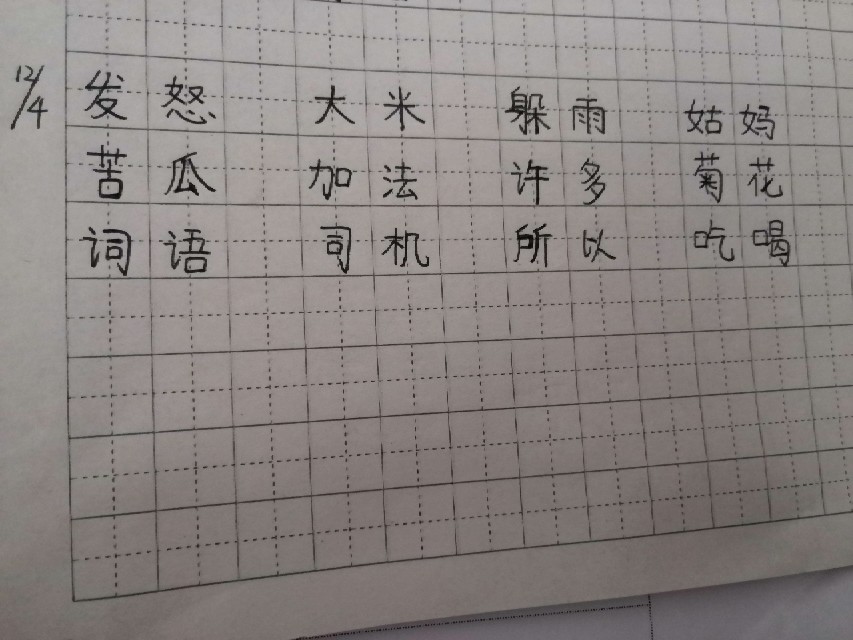 12/4 发怒 大米 躲雨 姑妈
苦瓜 加法 许多 菊花
词语 司机 所以 吃喝